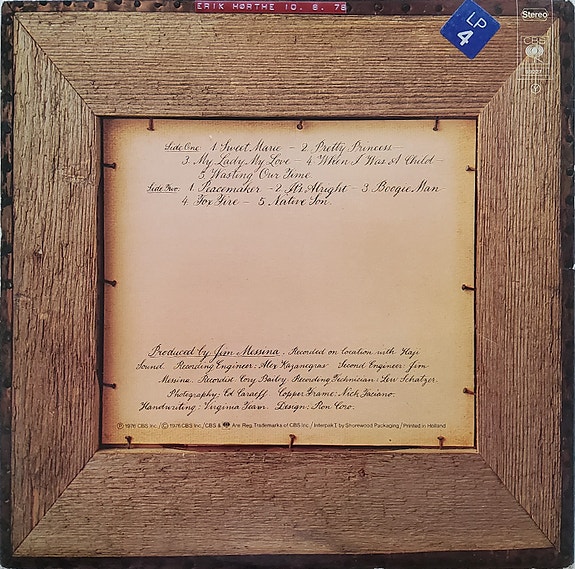 ERIK HØRTHE 10. 8. 76
LP
4
Stereo
CBS
Side One: 1 Sweet Marie - 2. Pretty Princess -
3. My Lady, My Love - 4 When I Was A Child -
5 Wasting Our Time.
Side Two: 1. Peacemaker - 2. It's Alright - 3. Boogie Man
4. Fox Fire - 5. Native Son.
Produced by Jim Messina. Recorded on location with Haji
Sound. Recording Engineer: Alex Kazanegras Second Engineer: Jim
Messina. Recordist Cory Bailey Recording Technician: Lew Schatzer.
Photography: Ed Caraeff. Copper Frame: Nick Faciano.
Handwriting: Virginia Team. Design: Ron Coro.
℗ 1976 CBS Inc./ © 1976 CBS Inc./CBS & Are Reg. Trademarks of CBS Inc./ Interpak I by Shorewood Packaging / Printed in Holland